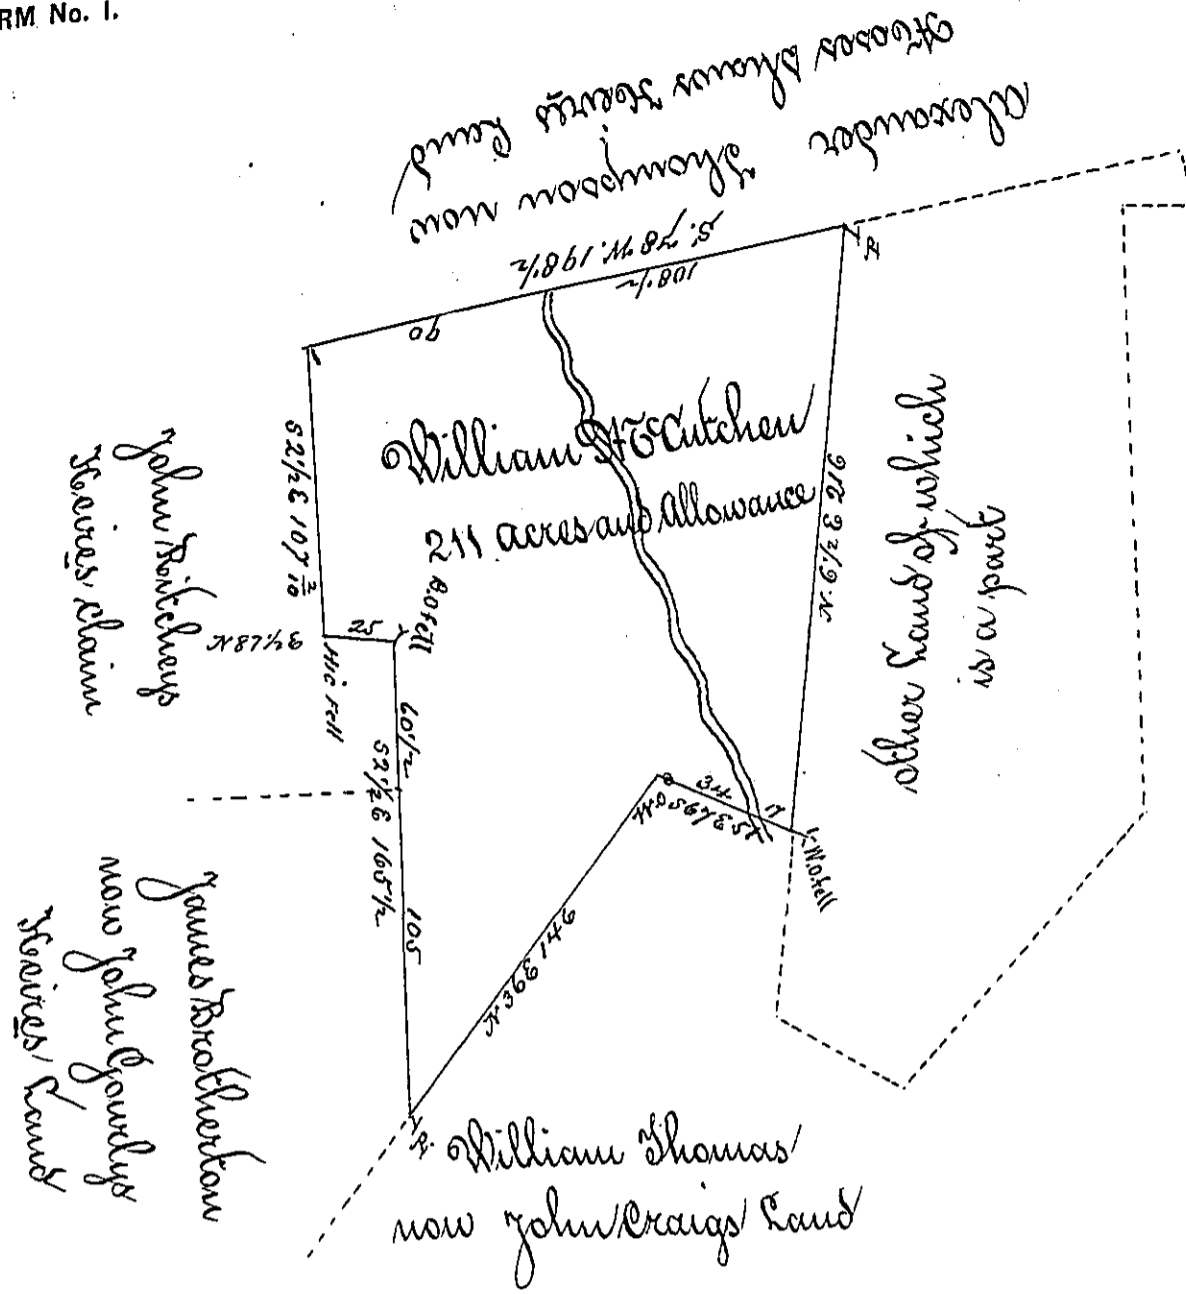 RM No. 1.
Alexander Thompson now
Moses Thomas Heir's Land
S. 78 W. 198 1/2
108 1/2
90
William McCutchen
211 acres and Allowance
S 2 1/2 E 107 2/10
John Ritcheys
Heires claim
25
N 87 1/2 E
B.O fell
Hic fell
60 1/2
S 2 1/2 E 165 1/2
105
N. 6 1/2 E 216
other Land of which
is a part
34
17
W.O.
W.O. fell
N 39 E 149
James Brotherton
now John Gourlys
Heires Land
William Thomas
now John Craigs Land